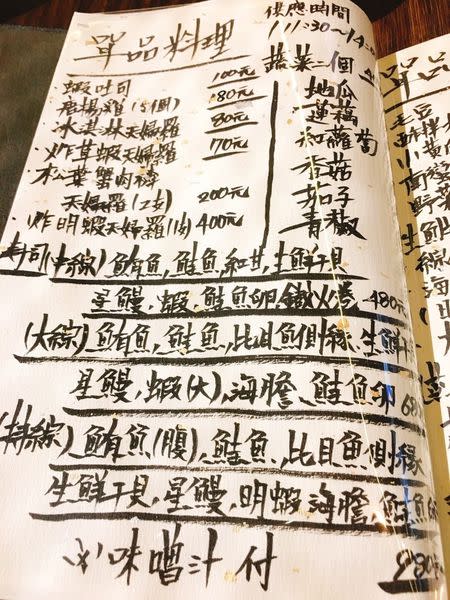 單品料理
供應時間
11:30~14:
・蝦吐司 100元
・唐揚雞(5個) 80元
・冰淇淋天婦羅 80元
・炸草蝦天婦羅 170元
・松葉蟹肉棒
天婦羅(2支) 200元
・炸明蝦天婦羅(1支) 400元
蔬菜二個
地瓜
蓮藕
和蘿蔔
香菇
茄子
青椒
壽司(中綜)鮪魚,鮭魚,和牛,生鮮干貝
星鰻,蝦,鮭魚卵,鐵火卷 480元
(大綜)鮪魚,鮭魚,比目魚側緣,生鮮干
星鰻,蝦(大),海膽、鮭魚卵
(特綜)鮪魚(腹),鮭魚,比目魚側緣
生鮮干貝,星鰻,明蝦,海膽,鮭魚
※味噌汁付
單品
毛豆